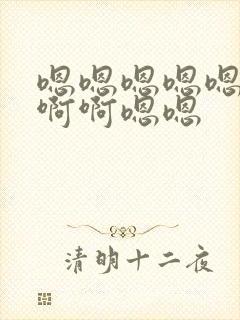 嗯嗯嗯嗯嗯
啊啊嗯嗯
清明十二夜